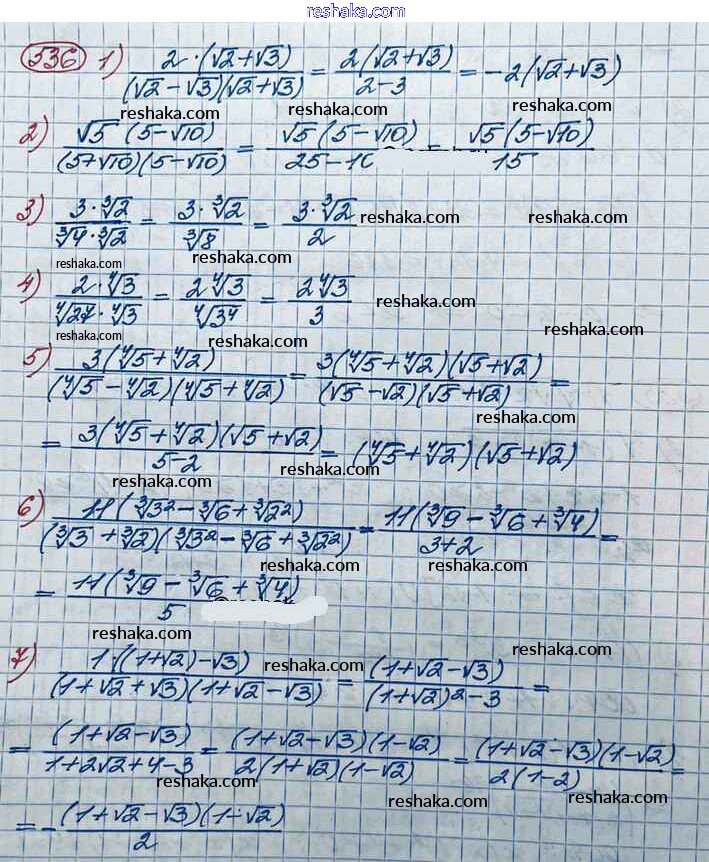 reshaka.com
536 1) 2·(√2+√3)/((√2-√3)(√2+√3)) = 2(√2+√3)/(2-3) = -2(√2+√3)
reshaka.com reshaka.com
2) √5(5-√10)/((5+√10)(5-√10)) = √5(5-√10)/(25-10 = √5(5-√10)/15
reshaka.com
3) 3·∛2/(∛4·∛2) = 3·∛2/∛8 = 3·∛2/2 reshaka.com reshaka.com
reshaka.com reshaka.com
4) 2·∜3/(∜27·∜3) = 2∜3/∜3⁴ = 2∜3/3 reshaka.com
reshaka.com reshaka.com reshaka.com
5) 3(∜5+∜2)/((∜5-∜2)(∜5+∜2)) = 3(∜5+∜2)(√5+√2)/((√5-√2)(√5+√2)) =
reshaka.com
= 3(∜5+∜2)(√5+√2)/(5-2) = (∜5+∜2)(√5+√2)
reshaka.com reshaka.com
6) 11(∛3²-∛6+∛2²)/((∛3+∛2)(∛3²-∛6+∛2²)) = 11(∛9-∛6+∛4)/(3+2) =
reshaka.com reshaka.com
= 11(∛9-∛6+∛4)/5
reshaka.com reshaka.com
7) 1·((1+√2)-√3)/((1+√2+√3)(1+√2-√3)) = (1+√2-√3)/((1+√2)²-3) =
reshaka.com reshaka.com
= (1+√2-√3)/(1+2√2+4-3) = (1+√2-√3)(1-√2)/(2(1+√2)(1-√2)) = (1+√2-√3)(1-√2)/(2(1-2)) =
reshaka.com reshaka.com reshaka.com
= -(1+√2-√3)(1-√2)/2
reshaka.com